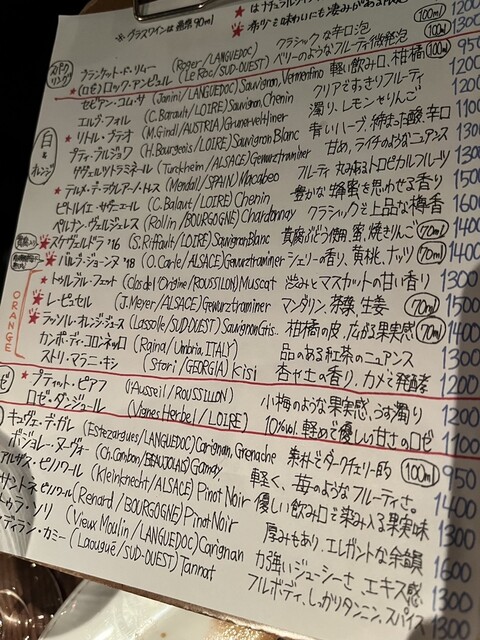 ※グラスワインは通常90ml
★はナチュラルワイン
★香りも味わいにも凄みがある
スパークリング
ブランケット・ド・リムー (Roger/LANGUEDOC) クラシックな辛口泡 (100ml) 1200
★(ロゼ)ロック・アンビュル (Le Roc/SUD-OUEST) ベリーのようなフルーティ微発泡 (100ml) 1300
白&オレンジ
セピアン・コム・サ (Janini/LANGUEDOC) Sauvignon, Vermentino 軽い飲み口、柑橘 (100ml) 950
エルヴ・フォル (C.Barault/LOIRE) Sauvignon, Chenin クリアですっきりフルーティ 1200
★リトル・ブテオ (M.Gindl/AUSTRIA) Grunerveltliner 濁り、レモンやりんご 1200
プティ・ブルジョワ (H.Bourgeois/LOIRE) Sauvignon Blanc 青いハーブ、締まった酸、辛口 1100
ゲヴュルツトラミネール (Turckheim/ALSACE) Gewurztraminer 甘め、ライチのようなニュアンス 1300
★テルメ・デ・ラ・グレアノ・トレス (Mendall/SPAIN) Macabeo フルーティ 丸みあるトロピカルフルーツ 1300
ピトルイエ・サヴェエール (C.Balaut/LOIRE) Chenin 豊かな蜂蜜を思わせる香り 1500
ペルナン・ヴェルジュレス (Rollin/BOURGOGNE) Chardonnay クラシックで上品な樽香 1600
★スケヴェルドラ '16 (S.Riffault/LOIRE) Sauvignon Blanc 貴腐ぶどう使用、蜜、焼きりんご (70ml) 1400
★バルグ・ジョーヌ '18 (O.Carle/ALSACE) Gewurztraminer シェリーの香り、黄桃、ナッツ (70ml) 1400
ORANGE
★トゥルブル・フェット (Clos de l'Origine/ROUSSILLON) Muscat 渋みとマスカットの甘い香り 1300
★レ・ピュセル (J.Meyer/ALSACE) Gewurztraminer マンダリン、茶葉、生姜 (70ml) 1500
★ラッソル・オレンジ・ジュース (Lassolle/SUD-OUEST) Sauvignon Gris. 柑橘の皮、広がる果実感 (70ml) 1400
カンポーディコロネッロ (Raina/Umbria, ITALY) 品のある紅茶のニュアンス 1300
ストリ・マラニ・キシ (Stori/GEORGIA) Kisi 杏や土の香り、カメで発酵 1200
ロゼ
★プティット・ピアフ (Ausseil/ROUSSILLON) 小梅のような果実感、うす濁り 1200
ロゼ・ダンジュール (Vignes Herbel/LOIRE) 10%vol. 軽めで優しい甘さのロゼ 1100
キュヴェ・デ・ガル (Estezargues/LANGUEDOC) Carignan, Grenache 素朴でダークチェリー的 (100ml) 950
ボジョレー・ヌーヴォー (Ch.Cambon/BEAUJOLAIS) Gamay 軽く、苺のようなフルーティさ。 1400
アルザス・ピノワール (Kleinknecht/ALSACE) Pinot Noir 優しい飲み口で染み入る果実味 1300
ピノワール (Renard/BOURGOGNE) Pinot Noir 厚みもあり、エレガントな余韻 1600
(Vieux Moulin/LANGUEDOC) Carignan 力強いジューシーさ、エキス感 1300
カミー (Laougué/SUD-OUEST) Tannat フルボディ、しっかりタンニン、スパイス 1300